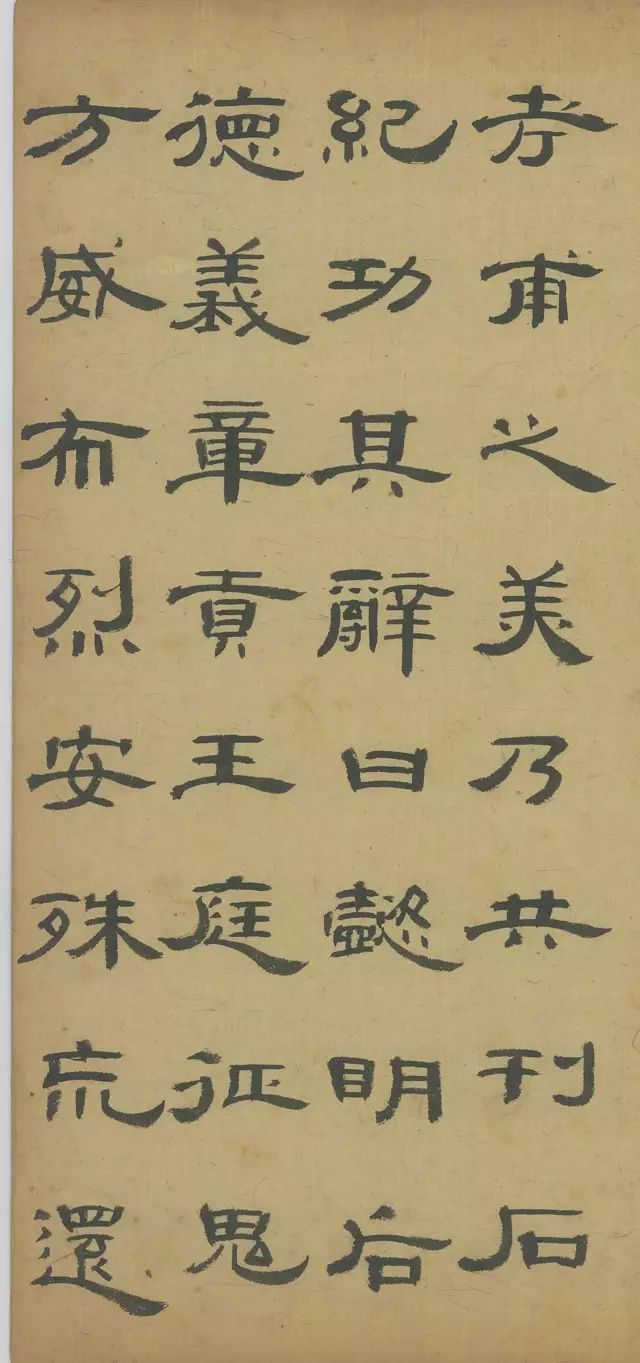 考甫之美乃共刊石
紀功其辭曰懿眀后
德義章貢王庭征鬼
方威布烈安殊巟還